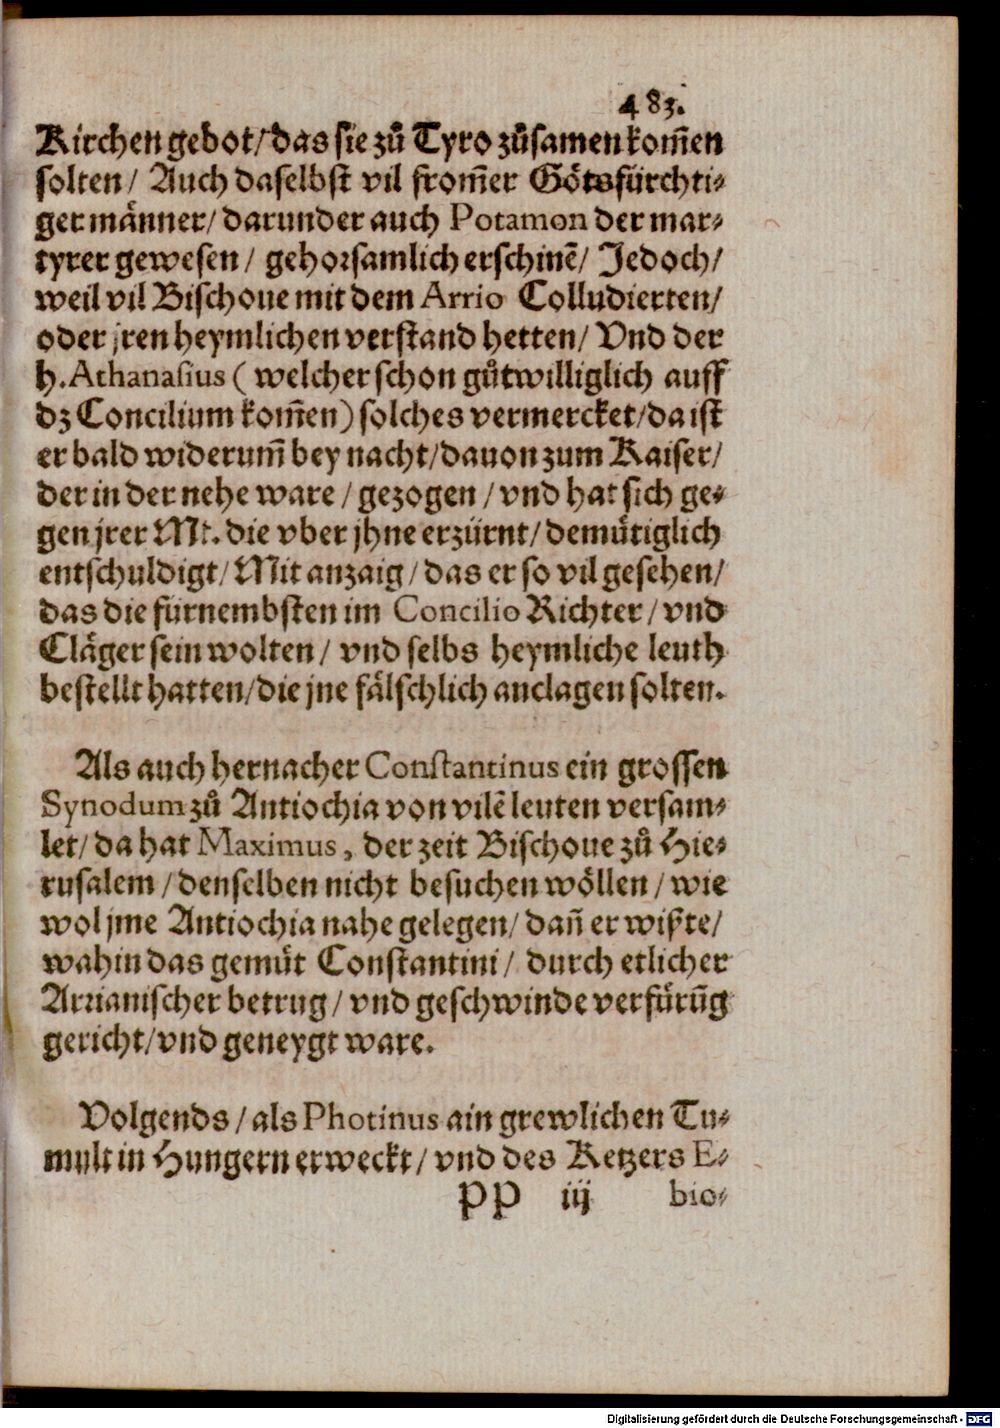 483.
Kirchen gebot/ das sie zů Tyro zůsamen kom̃en
solten/ Auch daselbst vil from̃er Götsfürchti⸗
ger männer/ darunder auch Potamon der mar⸗
tyrer gewesen/ gehorsamlich erschinẽ/ Jedoch/
weil vil Bischoue mit dem Arrio Colludierten/
oder jren heymlichen verstand hetten/ Vnd der
h. Athanasius ( welcher schon gůtwilliglich auff
dz Concilium kom̃en) solches vermercket/ da ist
er bald widerum̃ bey nacht/ dauon zum Kaiser/
der in der nehe ware/ gezogen/ vnd hat sich ge⸗
gen jrer Mt. die vber jhne erzürnt/ demütiglich
entschuldigt/ Mit anzaig/ das er so vil gesehen/
das die fürnembsten im Concilio Richter/ vnd
Cläger sein wolten/ vnd selbs heymliche leuth
bestellt hatten/ die jne fälschlich anclagen solten.
Als auch hernacher Constantinus ein grossen
Synodum zů Antiochia von vilẽ leuten versam⸗
let/ da hat Maximus, der zeit Bischoue zů Hie⸗
rusalem/ denselben nicht besuchen wöllen/ wie
wol jme Antiochia nahe gelegen/ dañ er wißte/
wahin das gemüt Constantini/ durch etlicher
Arrianischer betrug/ vnd geschwinde verfürũg
gericht/ vnd geneygt ware.
Volgends/ als Photinus ain grewlichen Tu⸗
mult in Hungern erweckt/ vnd des Ketzers E⸗
PP iij bio⸗
Digitalisierung gefördert durch die Deutsche Forschungsgemeinschaft - DFG